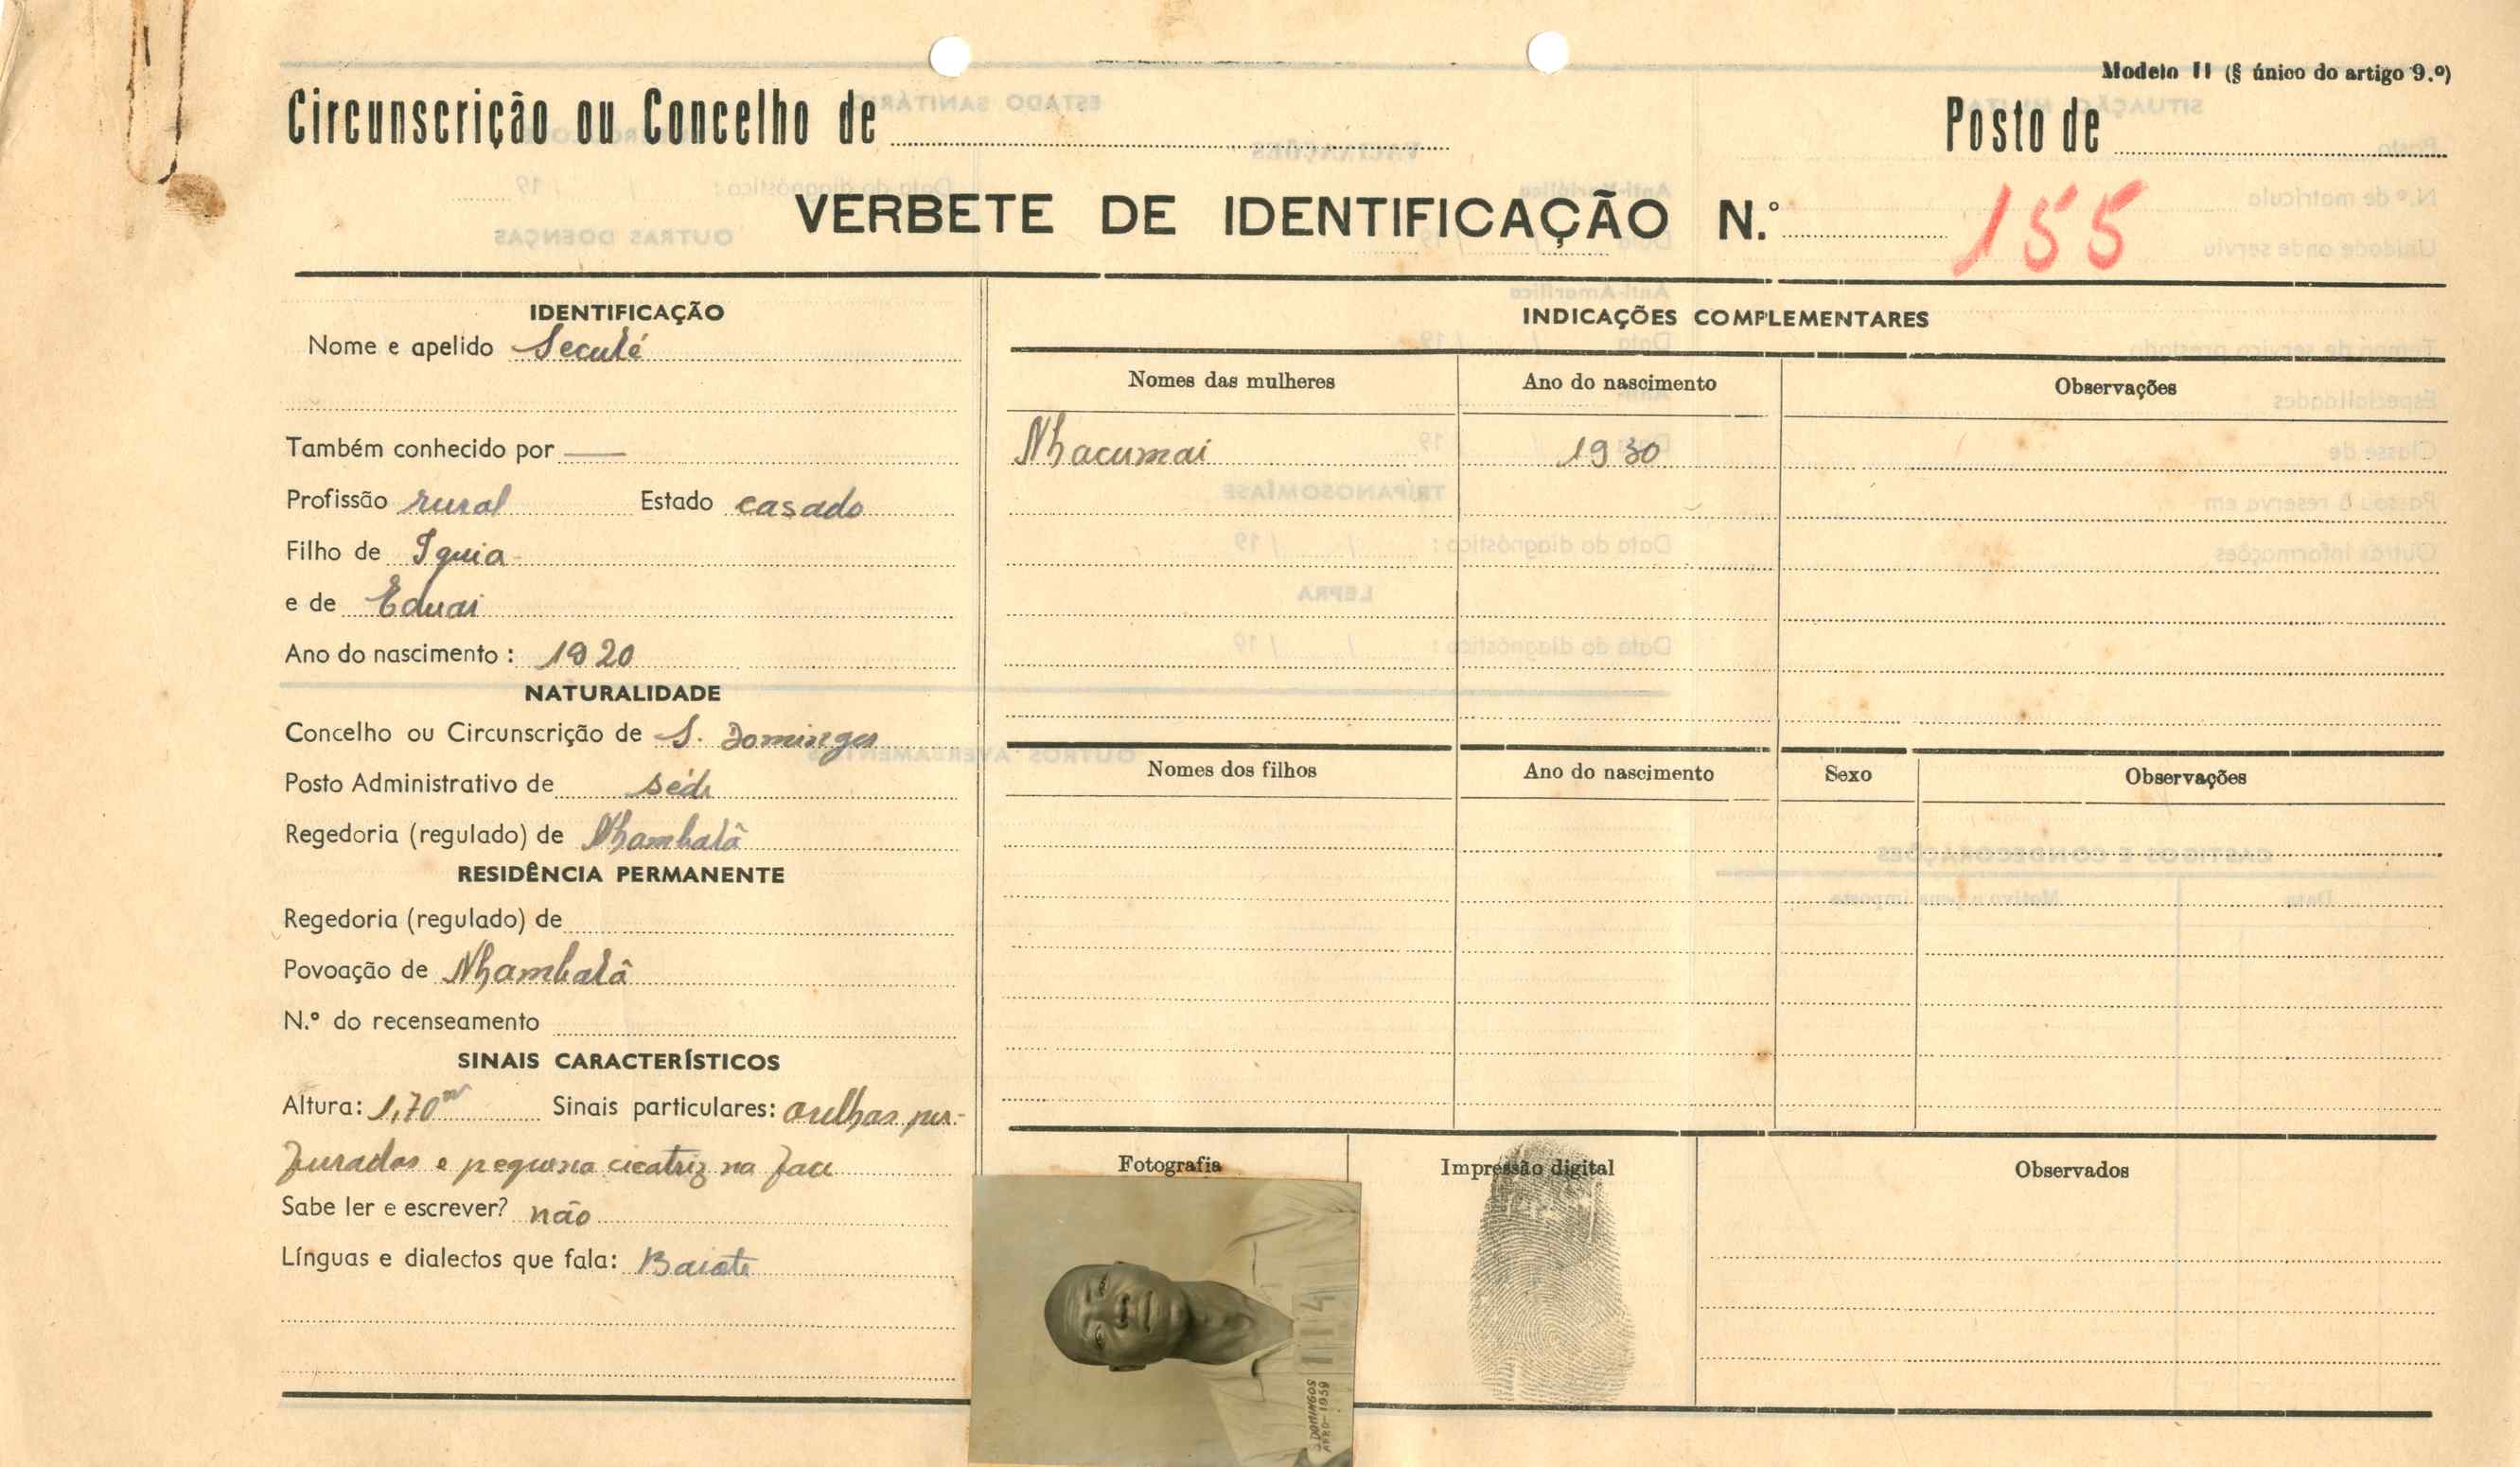 Modelo II (§ único do artigo 9.º)
Circunscrição ou Concelho de
Posto de
VERBETE DE IDENTIFICAÇÃO N.º 155
IDENTIFICAÇÃO
Nome e apelido Seculé
Também conhecido por —
Profissão rural Estado casado
Filho de Iquia
e de Eduai
Ano do nascimento: 1920
NATURALIDADE
Concelho ou Circunscrição de S. Domingos
Posto Administrativo de séde
Regedoria (regulado) de Nhambalã
RESIDÊNCIA PERMANENTE
Regedoria (regulado) de
Povoação de Nhambalã
N.º do recenseamento
SINAIS CARACTERÍSTICOS
Altura: 1,70m Sinais particulares: orelhas per-
furadas e pequena cicatriz na face
Sabe ler e escrever? não
Línguas e dialectos que fala: Baiote
INDICAÇÕES COMPLEMENTARES
Nomes das mulheres Ano do nascimento Observações
Nhacumai 1930
Nomes dos filhos Ano do nascimento Sexo Observações
Fotografia Impressão digital Observados
114
S. DOMINGOS
1959